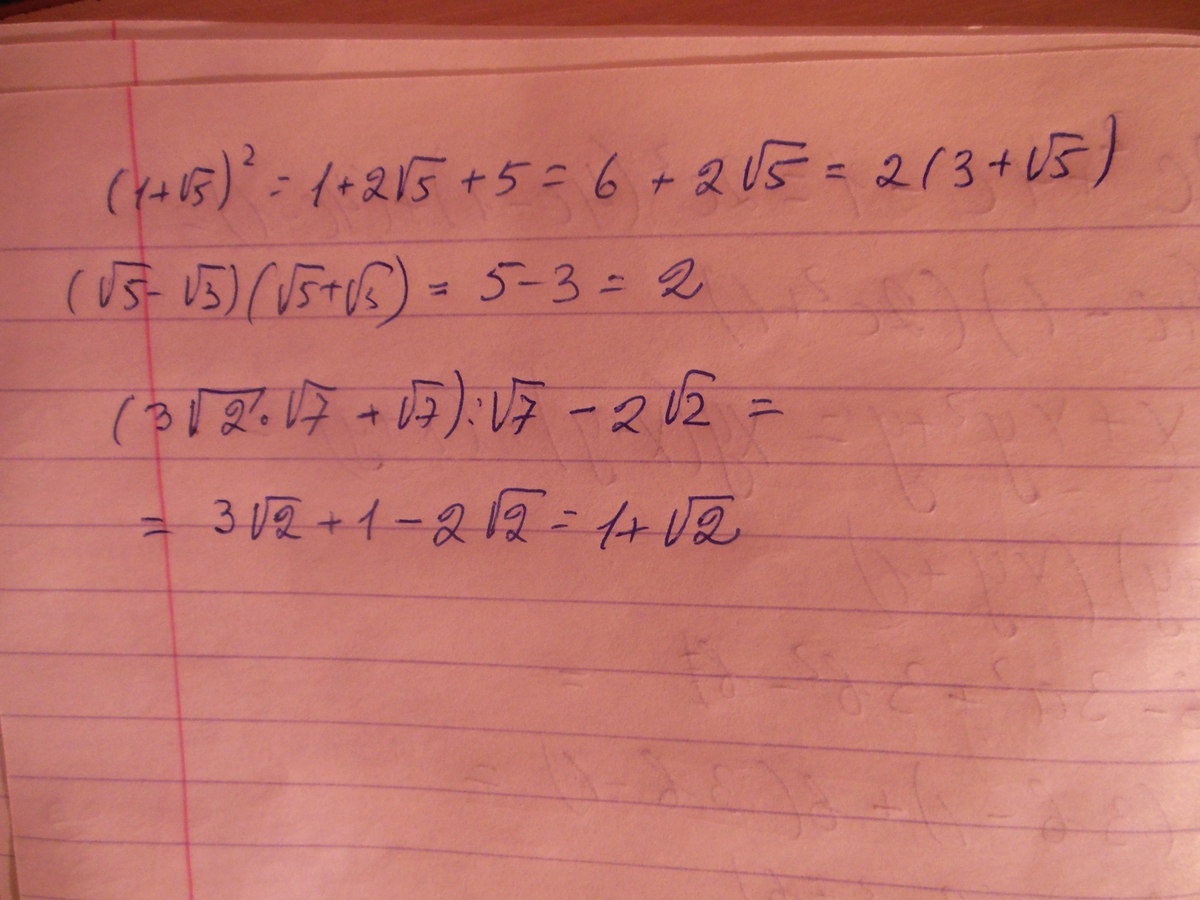 (1+√5)² = 1+2√5 + 5 = 6 + 2√5 = 2(3+√5)
(√5-√3)(√5+√3) = 5-3 = 2
(3√2·√7 + √7):√7 - 2√2 =
= 3√2 + 1 - 2√2 = 1+√2